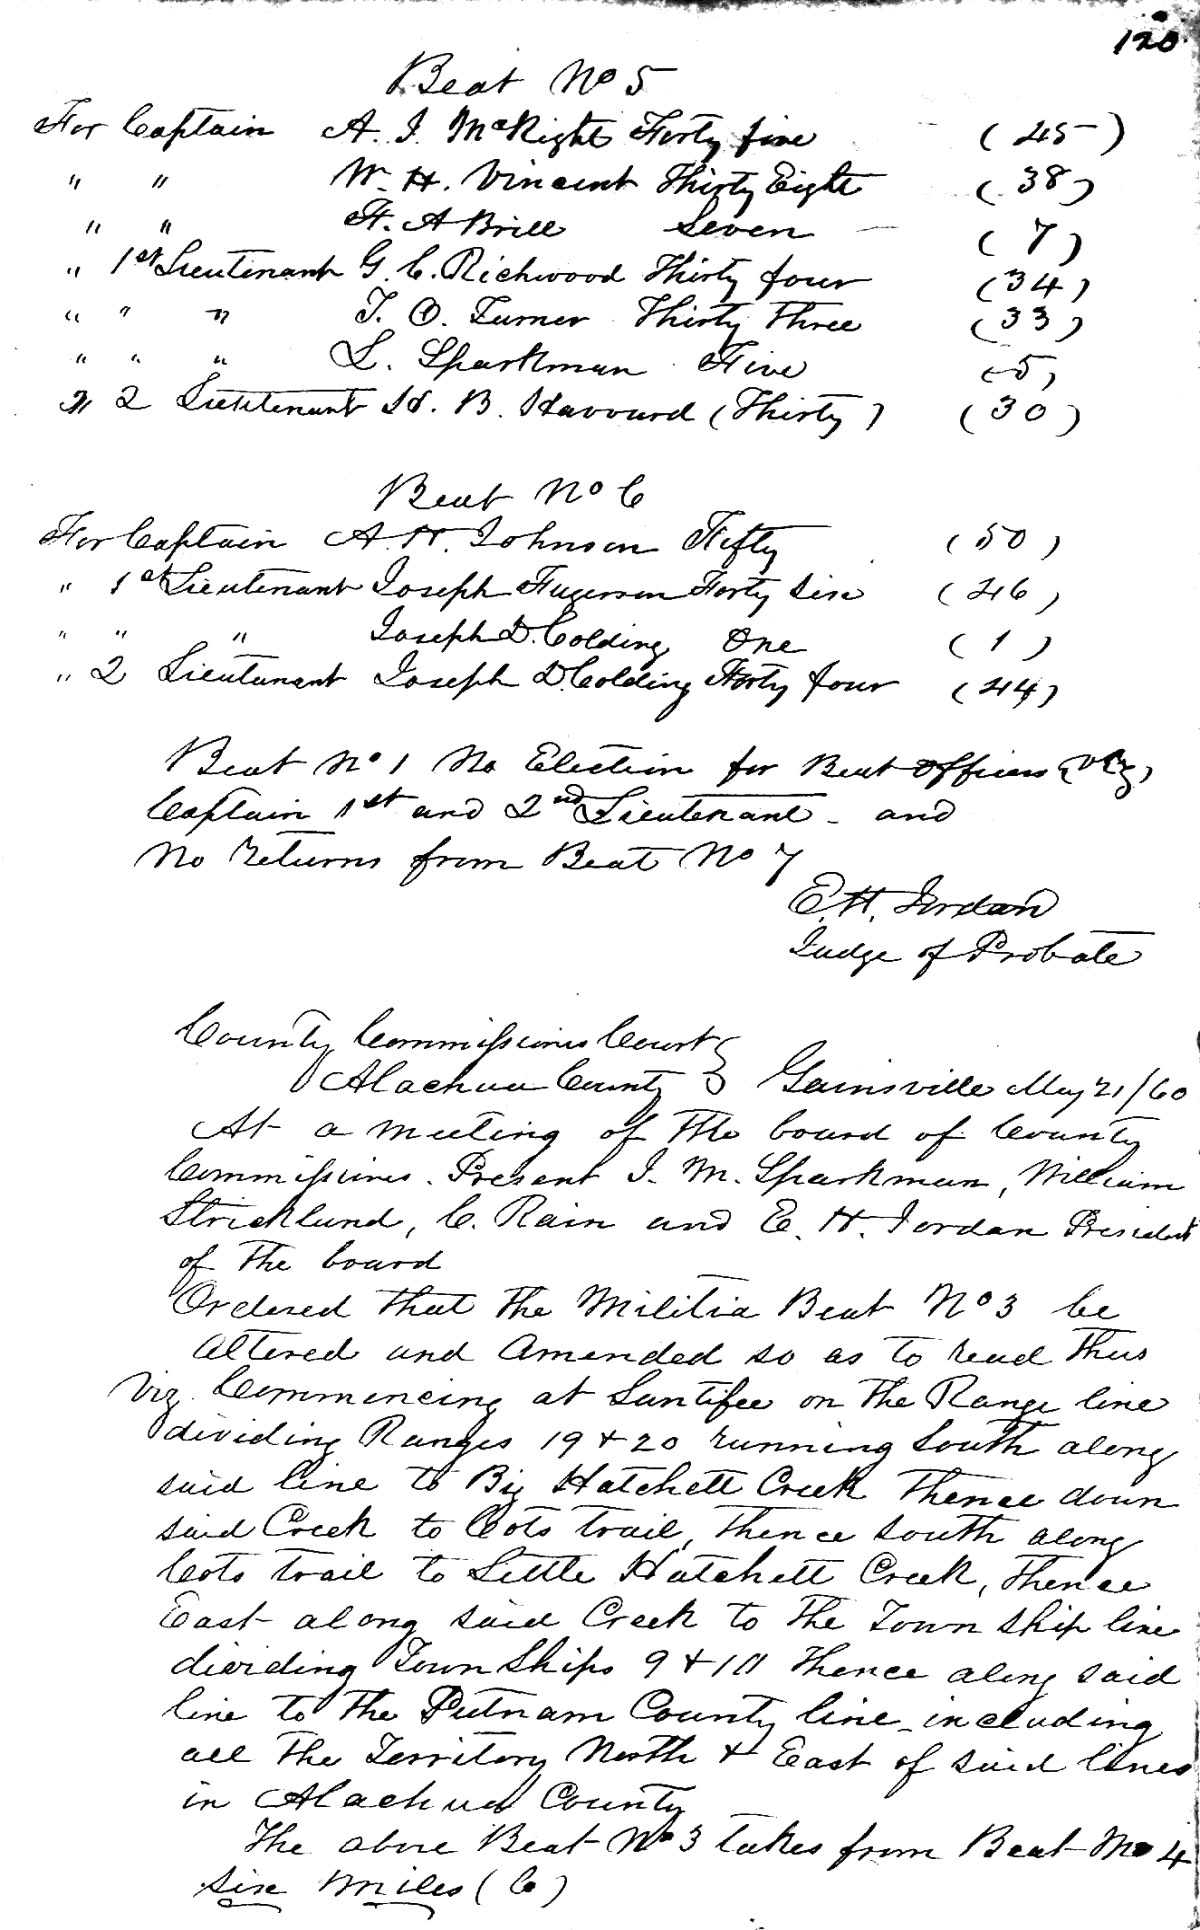 120
Beat No 5
For Captain A. J. McRight Forty five (45)
" " W. H. Vincent Thirty Eight (38)
" " F. A Brill Seven (7)
" 1st Lieutenant G. C. Richwood Thirty four (34)
" " " T. O. Turner Thirty Three (33)
" " " L. Sparkman Five (5)
" 2 Lieutenant H. B. Havvard (Thirty) (30)
Beat No 6
For Captain A. H. Johnson Fifty (50)
" 1st Lieutenant Joseph Fugerson Forty six (46)
" " " Joseph D. Colding One (1)
" 2 Lieutenant Joseph D. Colding Forty four (44)
Beat No 1 No Election for Beat officers (viz)
Captain 1st and 2nd Lieutenant - and
No returns from Beat No 7
E. H. Jordan
Judge of Probate
County Commissioners Court
Alachua County } Gainsville May 21/60
At a meeting of the board of County
Commissioners. Present J. M. Sparkman, William
Stricklund, C. Rain and E. H. Jordan President
of the board
Ordered that the Militia Beat No 3 be
altered and amended so as to read thus
Viz. Commencing at Santifee on the Range line
dividing Ranges 19 & 20 running South along
said line to Big Hatchett Creek Thence down
said Creek to Cots trail, Thence south along
Cots trail to Little Hatchett Creek, Thence
East along said Creek to the Town ship line
dividing Town Ships 9 & 10 Thence along said
line to the Putnam County line - including
all the Territory North & East of said lines
in Alachua County
The above Beat No 3 takes from Beat No 4
six miles (6)